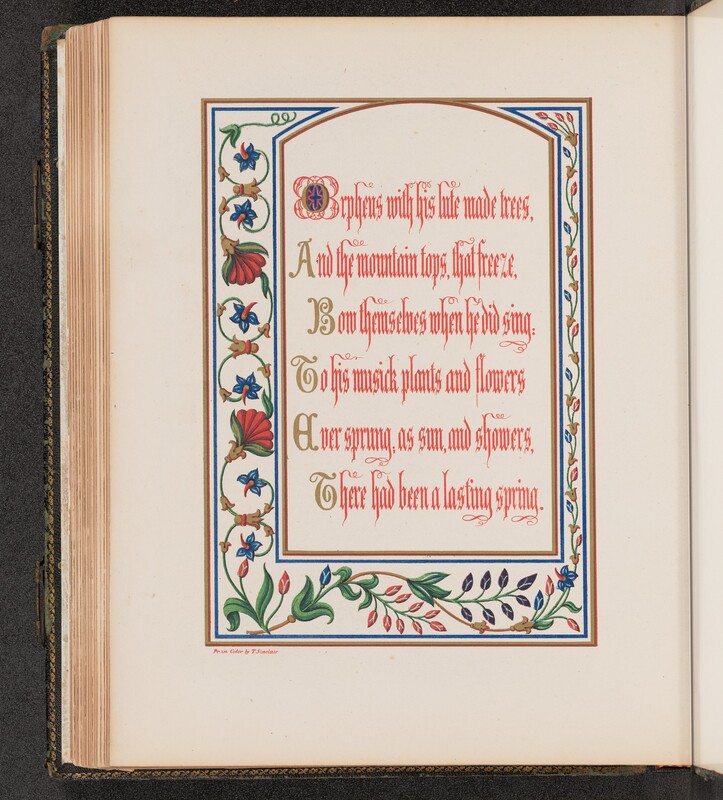 Orpheus with his lute made trees,
And the mountain tops, that freeze,
Bow themselves when he did sing:
To his musick plants and flowers
Ever sprung, as sun, and showers,
There had been a lasting spring.
Pr. in Color by T. Sinclair